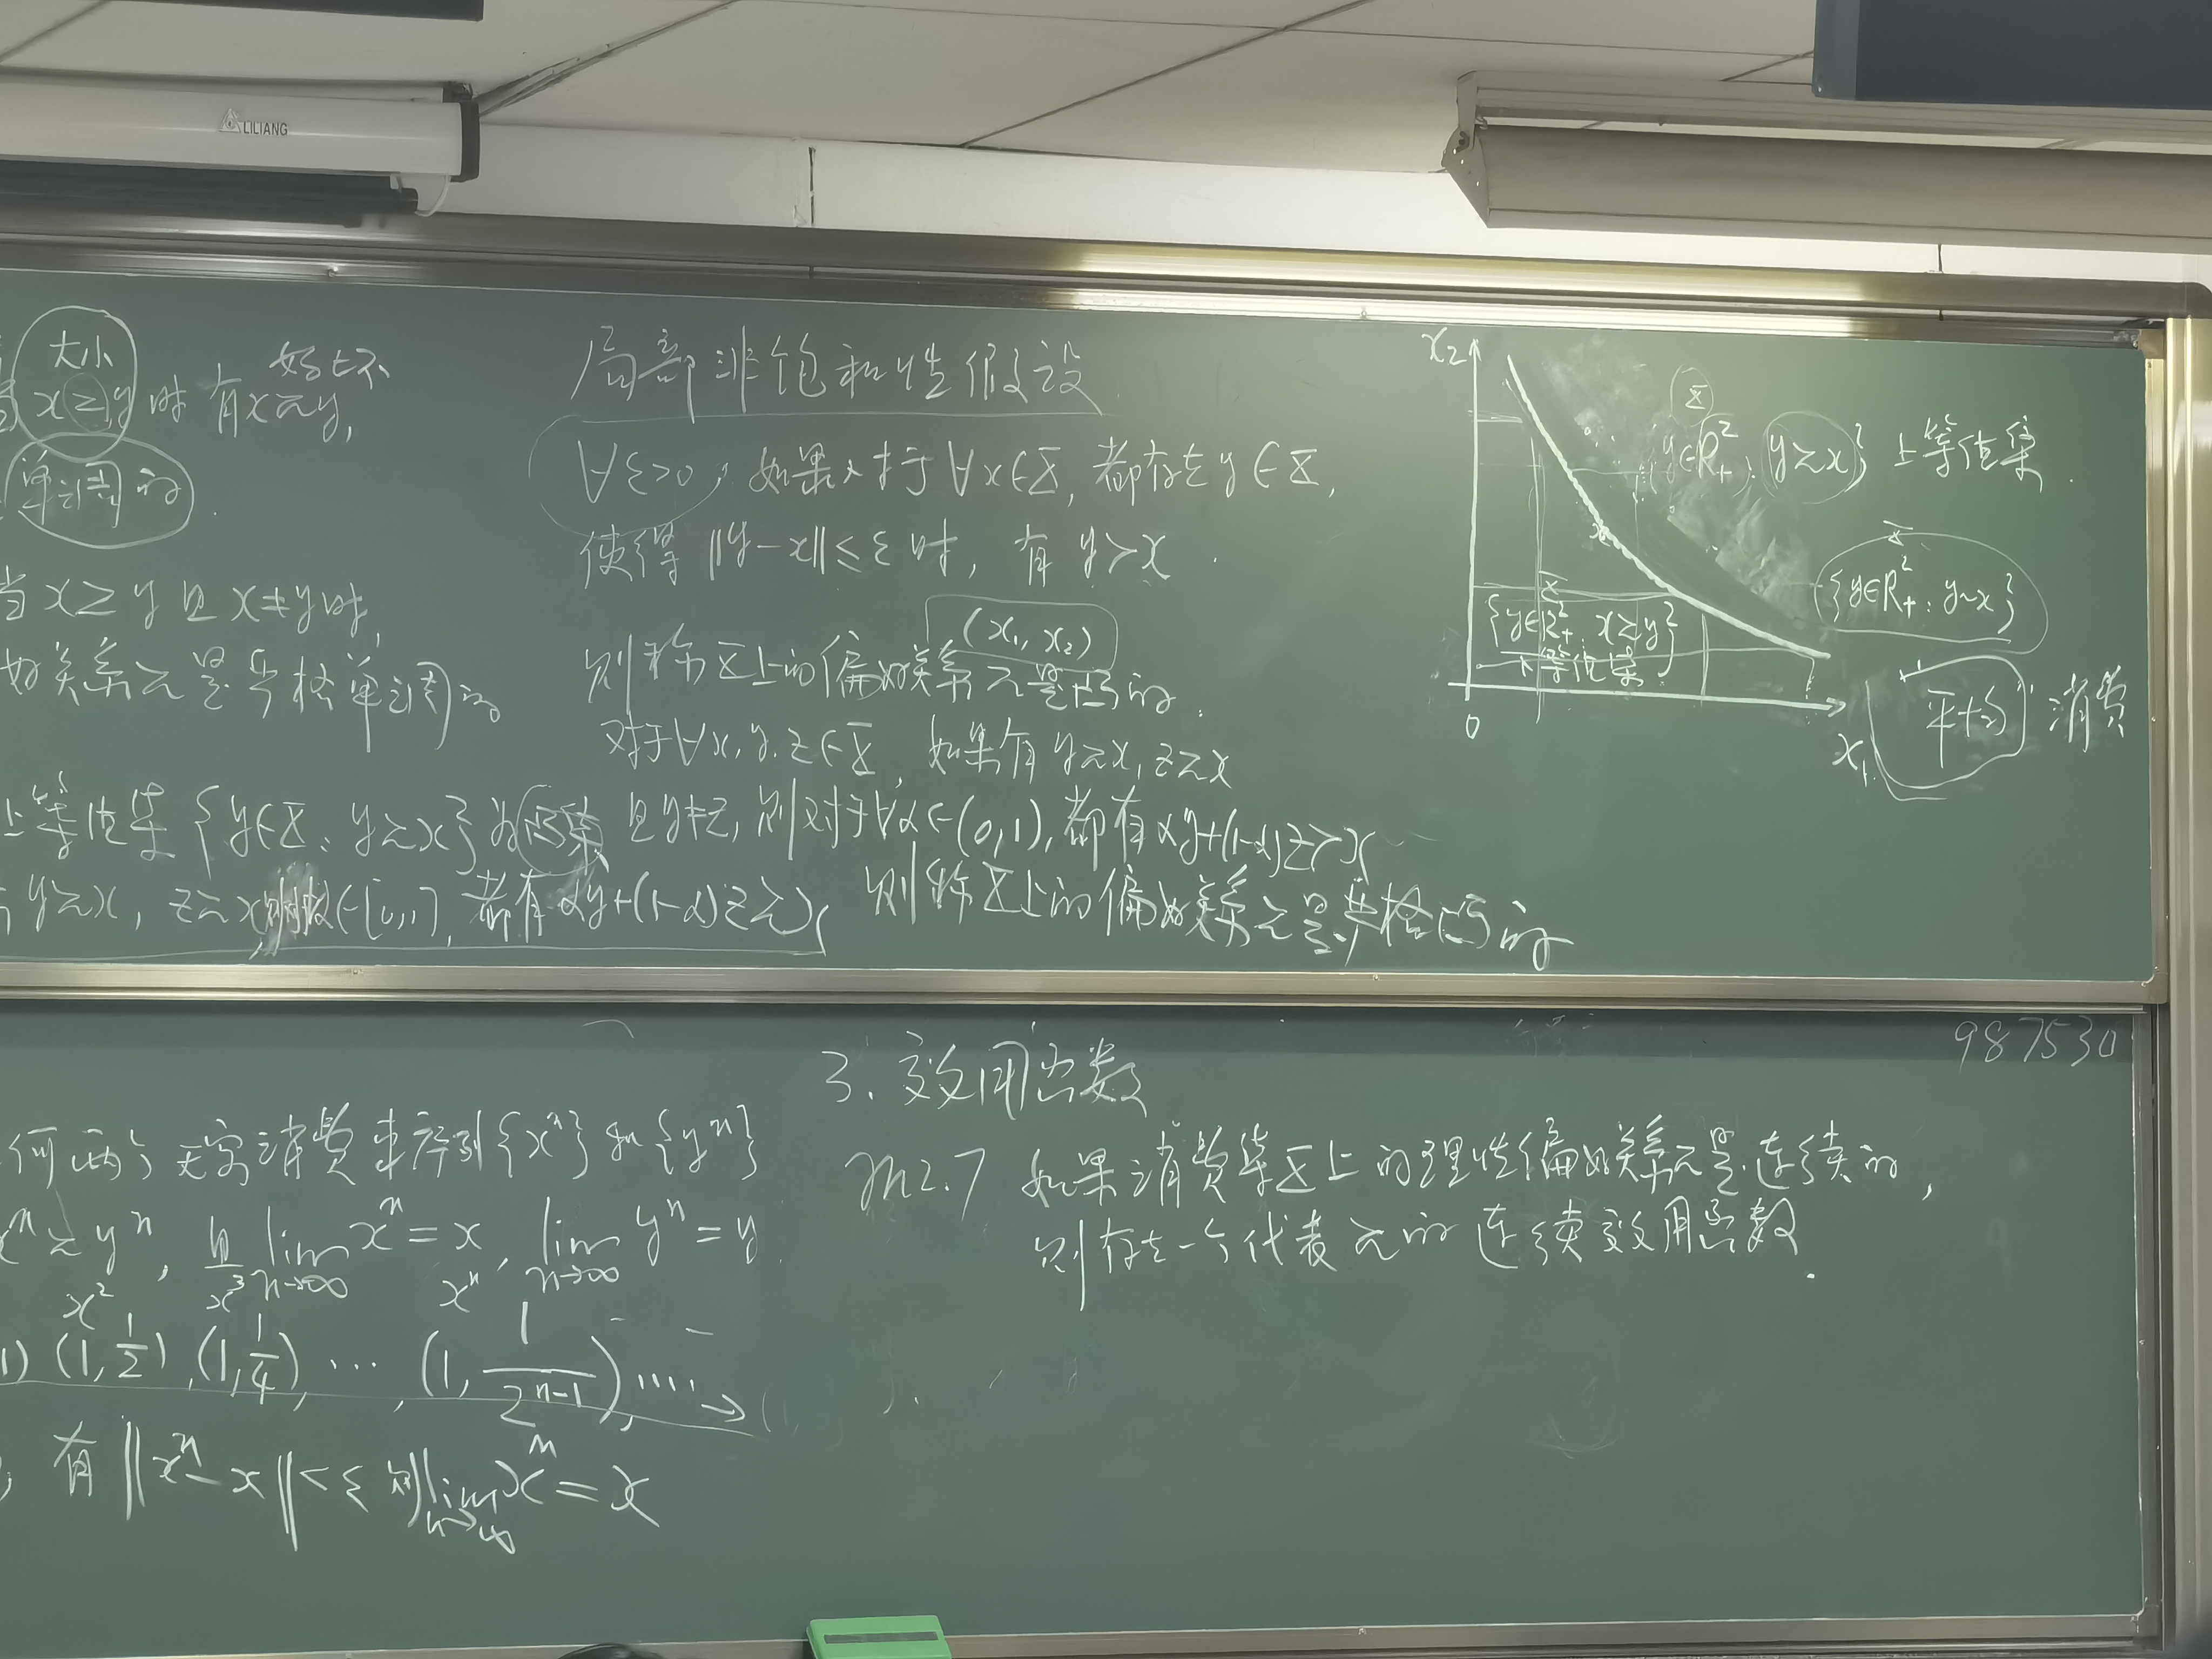 LILIANG
大小
好坏
x≥y时有x≿y,
单调的
当x≥y且x≠y时,
好关系≿是严格单调的
上等值集{y∈X: y≿x}为凸集
y≿x, z≿x, 则对α∈[0,1], 都有αy+(1-α)z≿x
局部非饱和性假设
∀ε>0, 如果对于∀x∈X, 都存在y∈X,
使得||y-x||≤ε时, 有y≻x.
(x₁, x₂)
则称X上的偏好关系≿是凸的.
对于∀x,y,z∈X, 如果有y≿x, z≿x
且y≠z, 则对于∀α∈(0,1), 都有αy+(1-α)z≻x
则称X上的偏好关系≿是严格凸的
x₂
X
{y∈R²₊: y≿x} 上等值集.
x
X
{y∈R²₊: y~x}
X
{y∈R²₊: x≿y}
下等值集
0
x₁
平均 消费
何两个无穷消费束序列{xⁿ}和{yⁿ}
xⁿ≿yⁿ, 且lim n→∞ xⁿ=x, lim n→∞ yⁿ=y.
x² x³ xⁿ
1) (1,1/2), (1,1/4), ···, (1, 1/2ⁿ⁻¹), ···· →
有||xⁿ-x||<ε 则lim n→∞ xⁿ=x
987530
3. 效用函数
Th2.7 如果消费集X上的理性偏好关系≿是连续的,
则存在一个代表≿的连续效用函数.